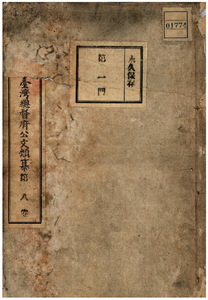 01773
永久保存
第一門
臺灣總督府公文類纂第八卷